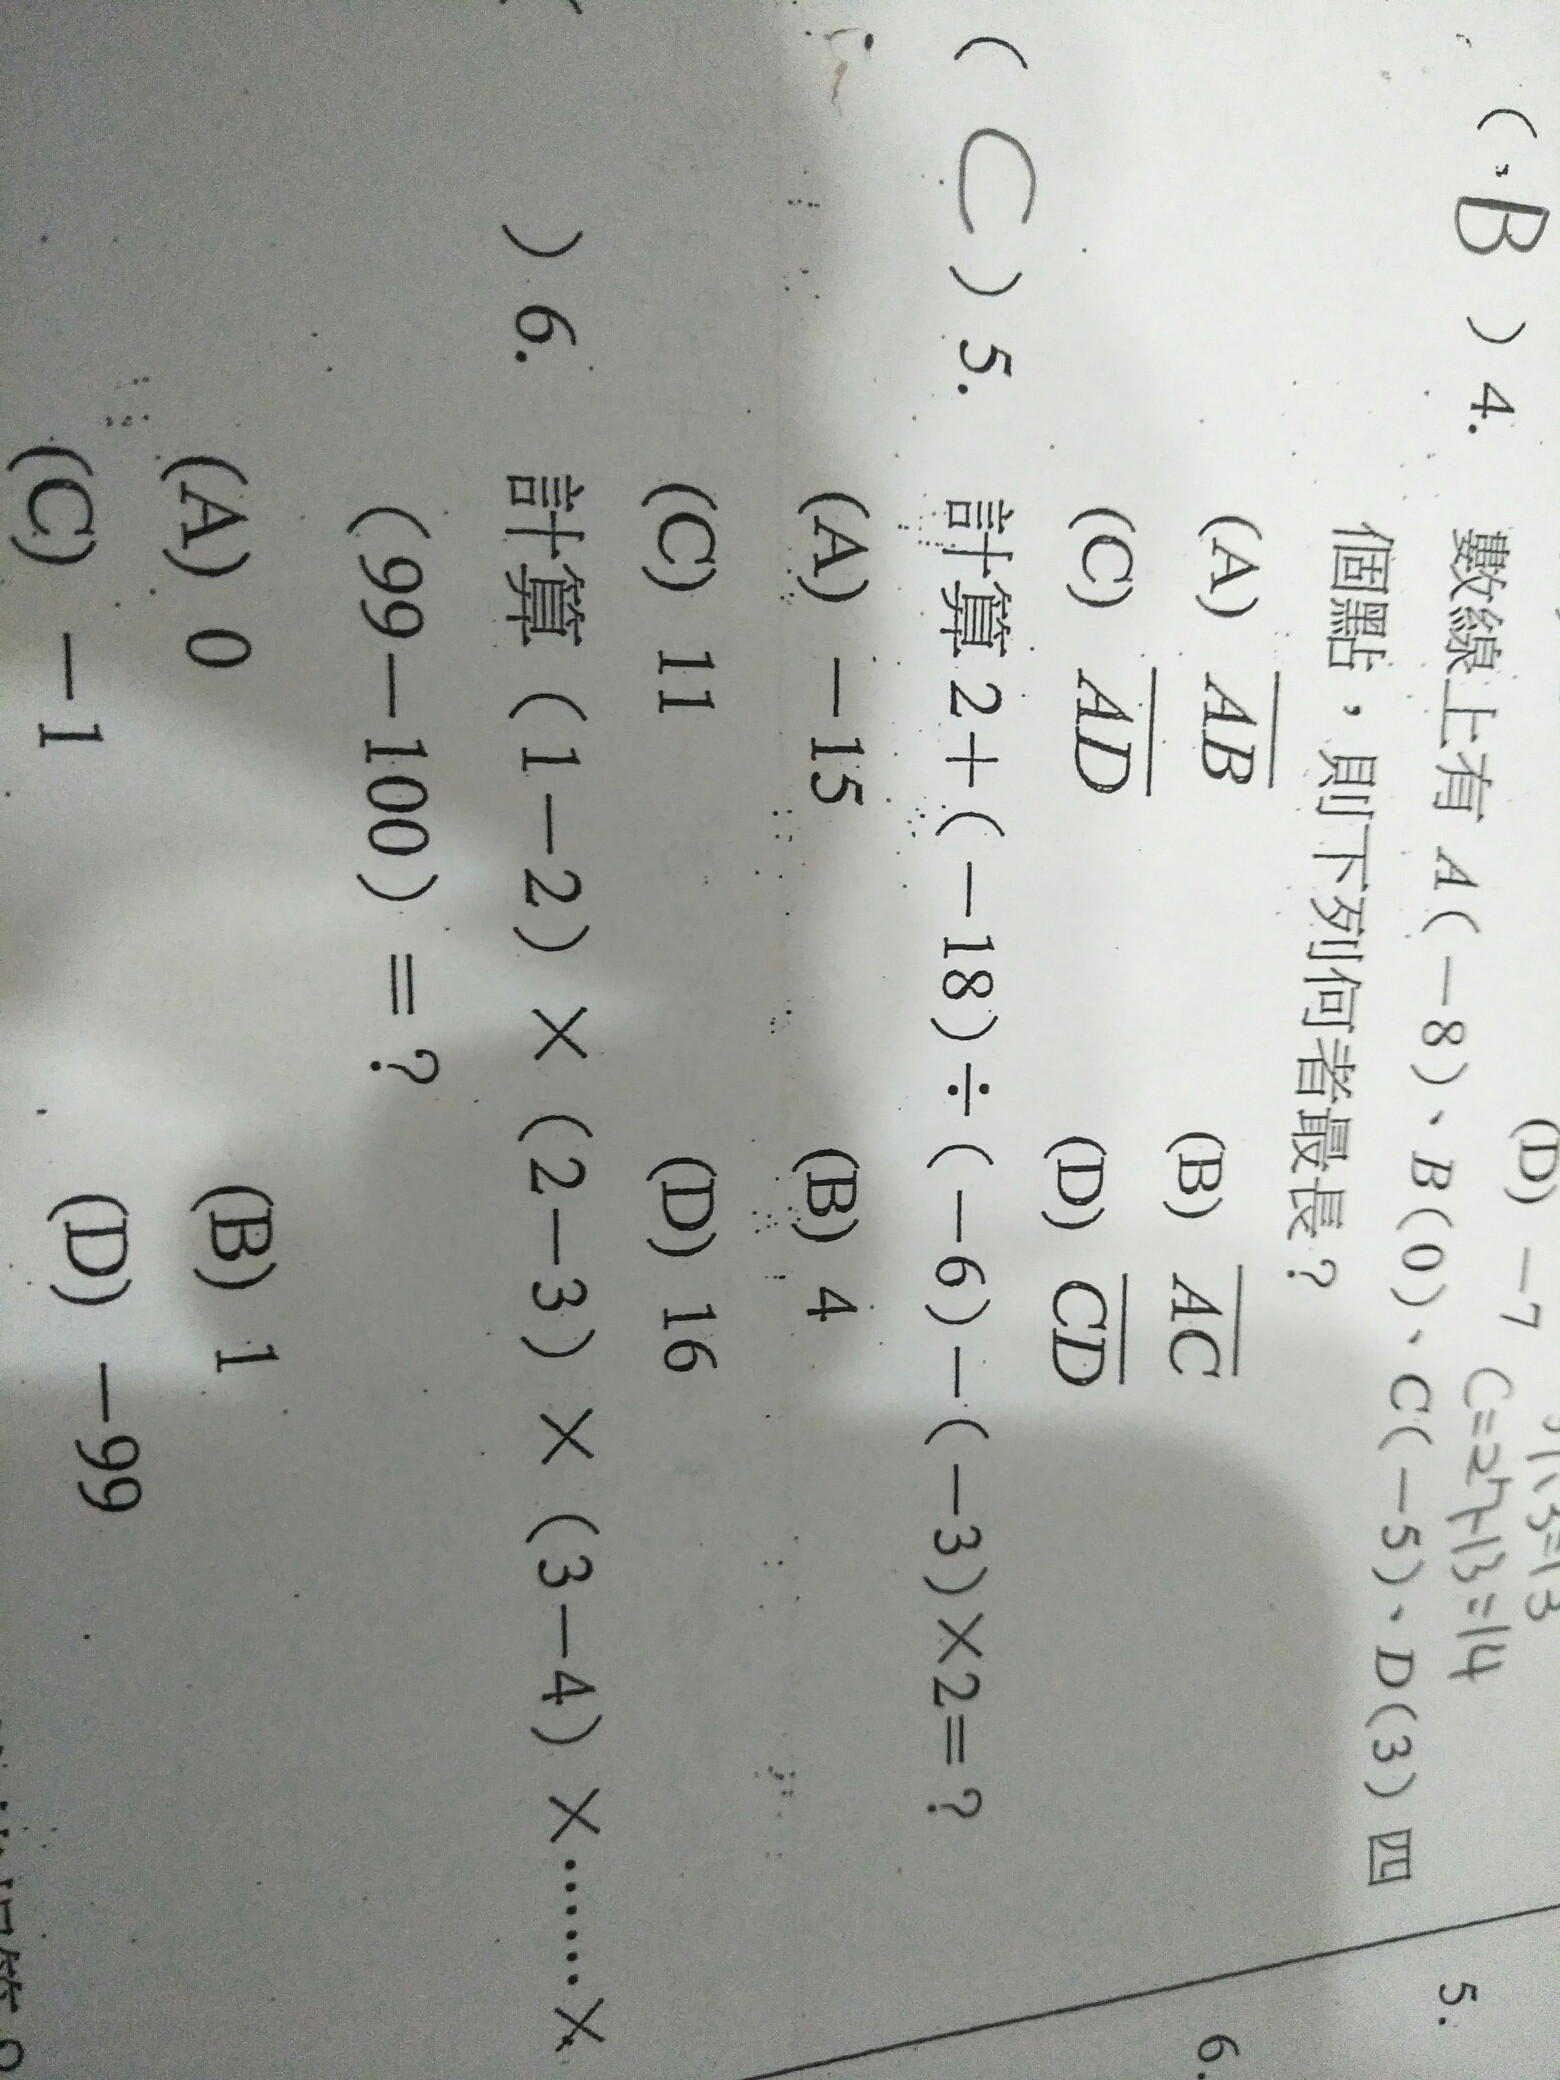 (D) －7
C=27+13=14
( B ) 4. 數線上有 A(－8)、B(0)、C(－5)、D(3) 四
個點，則下列何者最長？
(A) AB (B) AC
(C) AD (D) CD
( C ) 5. 計算 2＋(－18)÷(－6)－(－3)×2＝？
(A) －15 (B) 4
(C) 11 (D) 16
) 6. 計算（1－2）×（2－3）×（3－4）×……×
（99－100）＝？
(A) 0 (B) 1
(C) －1 (D) －99
5.
6.